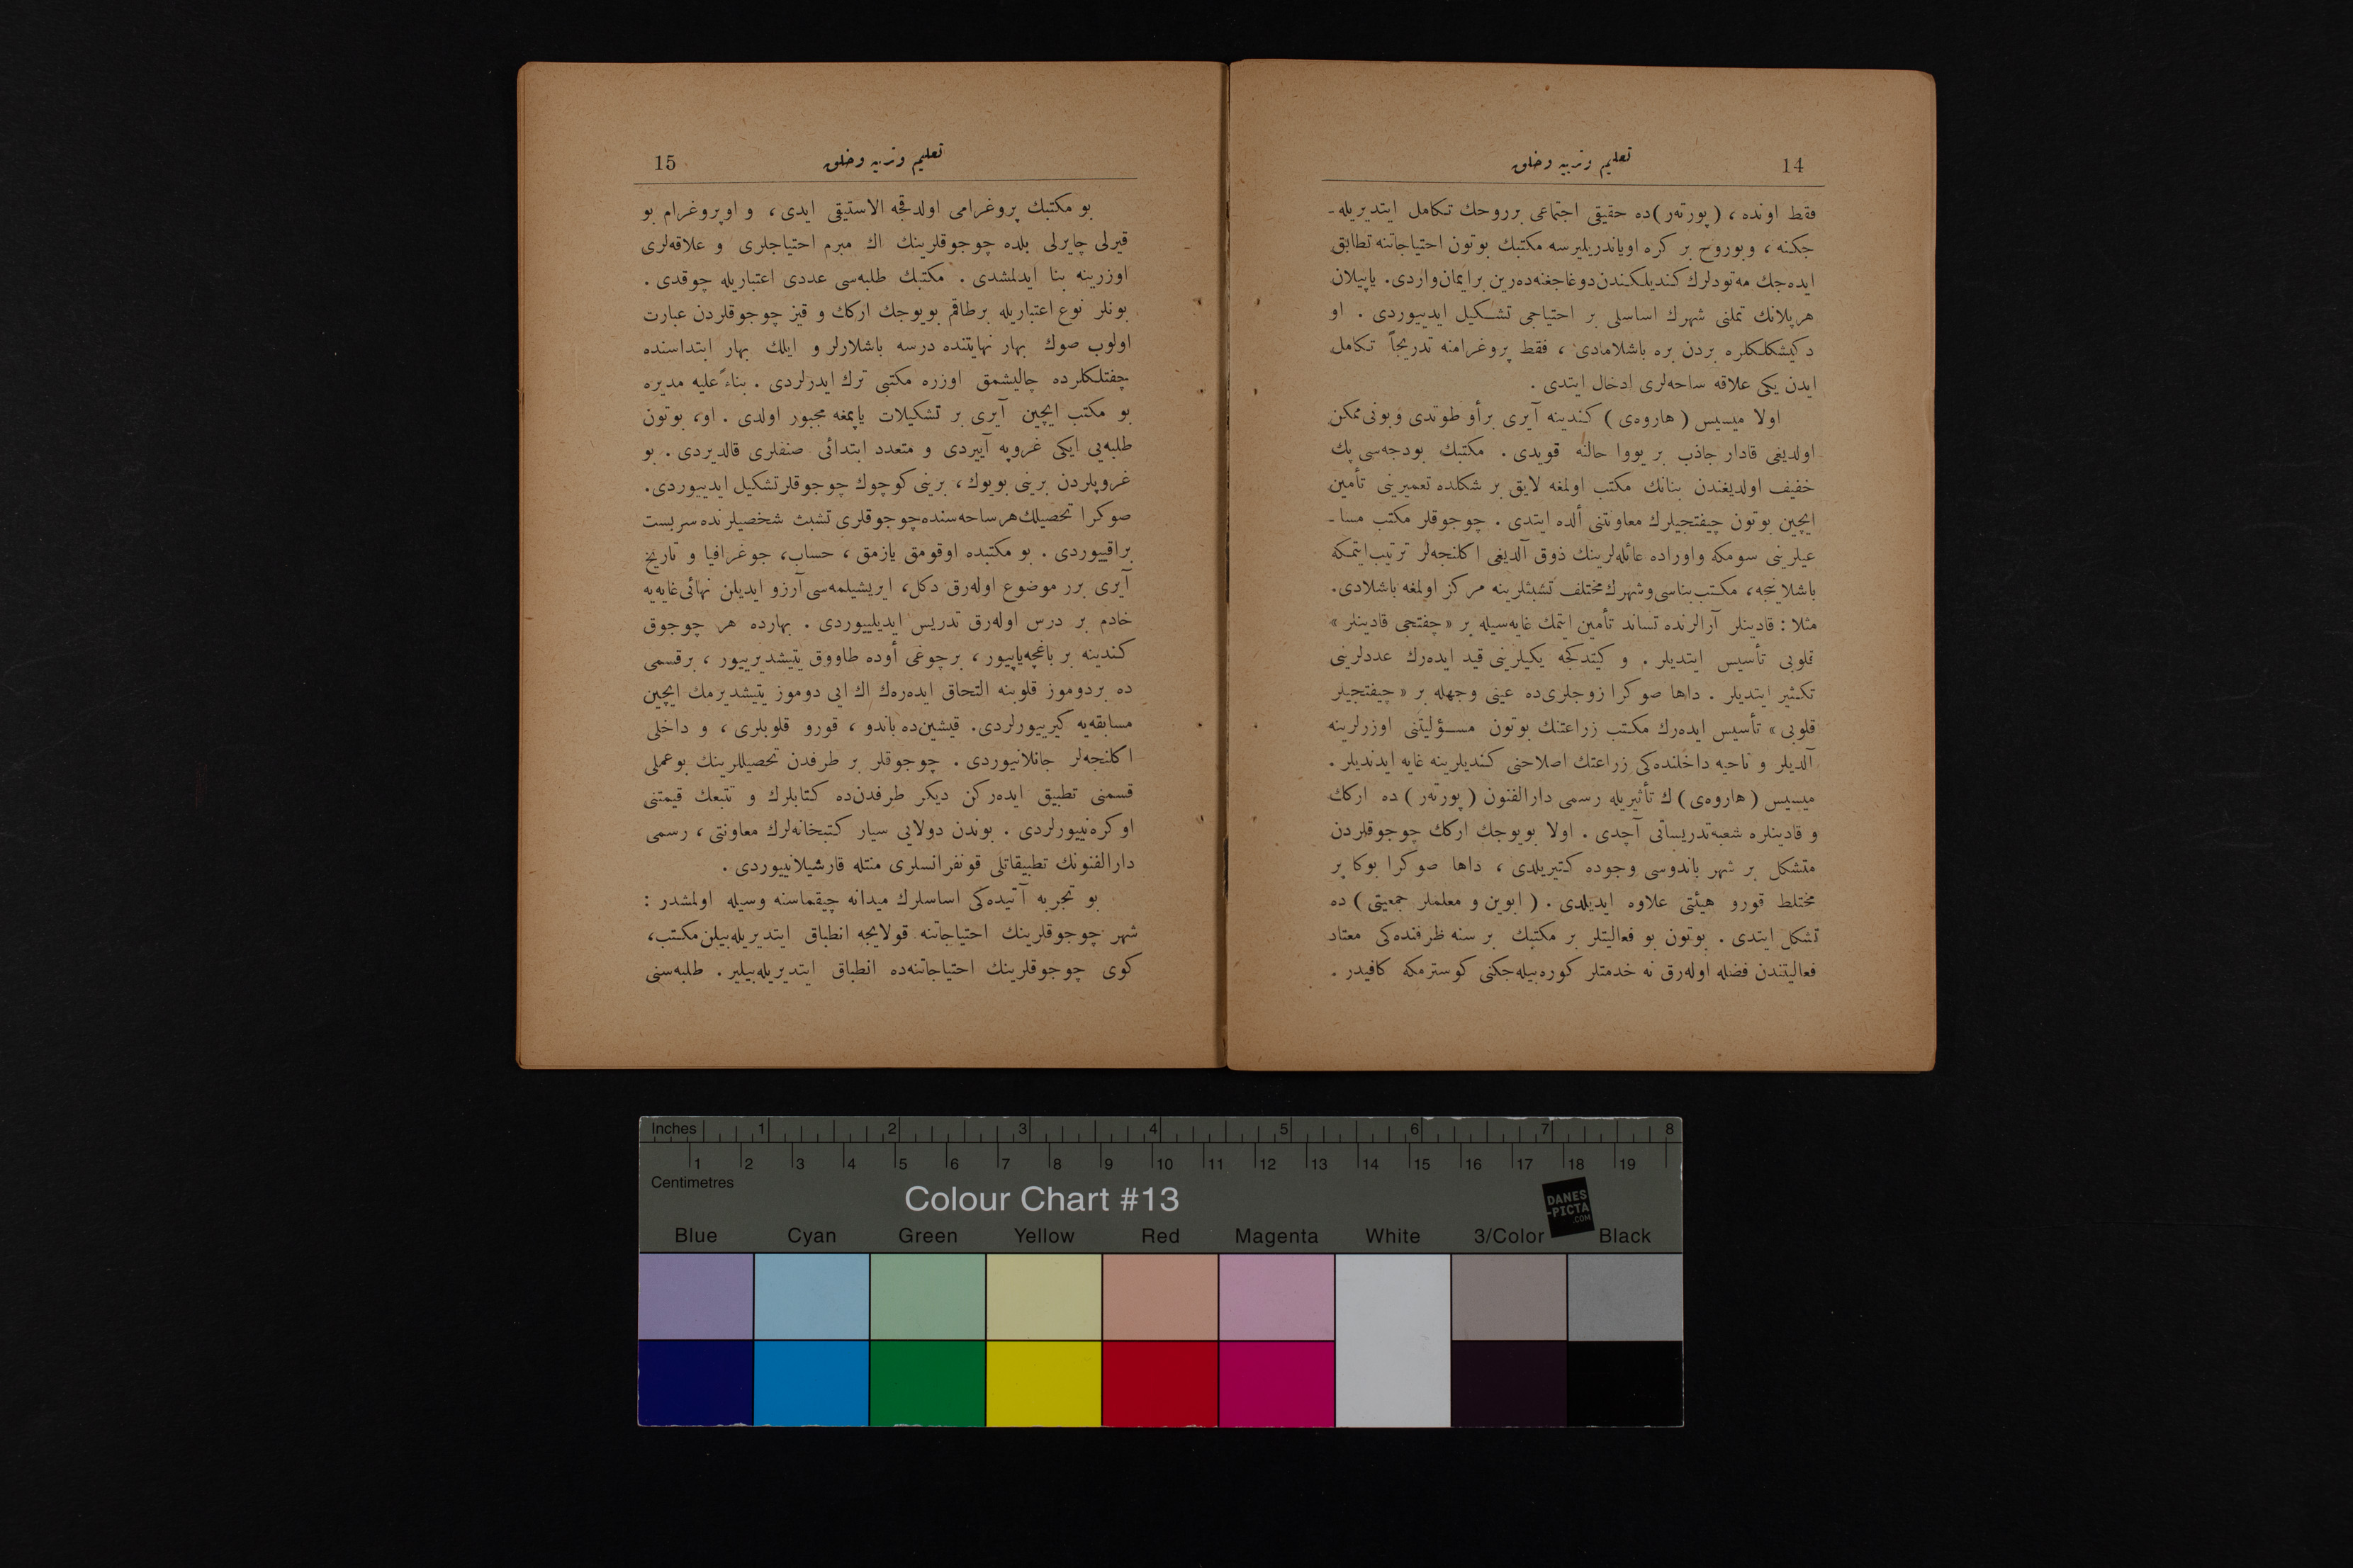 14
تعليم وتربيه وخلق
فقط اونده ، (پورتەر) ده حقيقى اجتماعى برروحك تكامل ايتديريله-
جكنه ، وبوروح بر كره اوياندريليرسه مكتبك بوتون احتياجاتنه تطابق
ايده‌جك مه‌تودلرك كنديلكندن دوغاجغنه ده‌رين برايمان واردى. ياپيلان
هرپلانك تملنى شهرك اساسلى بر احتياجى تشكيل ايدييوردى . او
دكيشكلكلره بردن بره باشلامادى ، فقط پروغرامنه تدريجاً تكامل
ايدن يكى علاقه ساحه‌لرى ادخال ايتدى .
اولا ميسيس ( هاروه‌ى ) كندينه آيرى برأو طوتدى وبونى ممكن
اولديغى قادار جاذب بر يووا حالنه قويدى . مكتبك بودجه‌سى پك
خفيف اولديغندن بنانك مكتب اولمغه لايق بر شكلده تعميرينى تأمين
ايچين بوتون چيفتجيلرك معاونتنى ألده ايتدى . چوجوقلر مكتب مسا-
عيلرينى سومكه واوراده عائله‌لرينك ذوق آلديغى اكلنجه‌لر ترتيب ايتمكه
باشلاينجه ، مكتب بناسى وشهرك مختلف تشبثلرينه مركز اولمغه باشلادى.
مثلا : قادينلر آرالرنده تساند تأمين ايتمك غايه‌سيله بر « چفتجى قادينلر »
قلوبى تأسيس ايتديلر . و كيتدكجه يكيلرينى قيد ايده‌رك عددلرينى
تكثير ايتديلر . داها صوكرا زوجلرى‌ده عينى وجهله بر « چيفتجيلر
قلوبى » تأسيس ايده‌رك مكتب زراعتنك بوتون مسؤليتنى اوزرلرينه
آلديلر و ناحيه داخلنده‌كى زراعتك اصلاحنى كنديلرينه غايه ايدنديلر .
ميسيس (هاروه‌ى) ك تأثيريله رسمى دارالفنون (پورتەر) ده اركك
و قادينلره شعبه تدريساتى آچدى . اولا بويوجك اركك چوجوقلردن
متشكل بر شهر باندوسى وجوده كتيريلدى ، داها صوكرا بوكا بر
مختلط قورو هيئتى علاوه ايديلدى . ( ابوين و معلملر جمعيتى ) ده
تشكل ايتدى . بوتون بو فعاليتلر بر مكتبك بر سنه ظرفنده‌كى معتاد
فعاليتندن فضله اوله‌رق نه خدمتلر كوره‌بيله‌جكنى كوسترمكه كافيدر .
15
تعليم وتربيه وخلق
بو مكتبك پروغرامى اولدقجه الاستيقى ايدى ، و اوپروغرام بو
قيرلى چايرلى بلده چوجوقلرينك اك مبرم احتياجلرى و علاقه‌لرى
اوزرينه بنا ايدلمشدى . مكتبك طلبه‌سى عددى اعتباريله چوقدى .
بونلر نوع اعتباريله برطاقم بويوجك اركك و قيز چوجوقلردن عبارت
اولوب صوك بهار نهايتنده درسه باشلارلر و ايلك بهار ابتداسنده
چفتلكلرده چاليشمق اوزره مكتبى ترك ايدرلردى . بناءً عليه مديره
بو مكتب ايچين آيرى بر تشكيلات ياپمغه مجبور اولدى . او، بوتون
طلبه‌يى ايكى غروپه آييردى و متعدد ابتدائى صنفلرى قالديردى . بو
غروپلردن برينى بويوك ، برينى كوچوك چوجوقلر تشكيل ايدييوردى.
صوكرا تحصيلك هر ساحه‌سنده چوجوقلرى تشبث شخصيلرنده سربست
براقييوردى . بو مكتبده اوقومق يازمق ، حساب، جوغرافيا و تاريخ
آيرى برر موضوع اوله‌رق دكل، ايريشيلمه‌سى آرزو ايديلن نهائى غايه‌يه
خادم بر درس اوله‌رق تدريس ايديلييوردى . بهارده هر چوجوق
كندينه بر باغچه ياپييور ، برچوغى أوده طاووق يتيشديرييور ، برقسمى
ده بردوموز قلوبنه التحاق ايده‌ره‌ك اك ايى دوموز يتيشديرمك ايچين
مسابقه‌يه كيرييورلردى. قيشين‌ده باندو ، قورو قلوبلرى ، و داخلى
اكلنجه‌لر جانلانييوردى . چوجوقلر بر طرفدن تحصيللرينك بوعملى
قسمنى تطبيق ايده‌ركن ديكر طرفدن‌ده كتابلرك و تتبعك قيمتنى
اوكره‌نييورلردى . بوندن دولايى سيار كتبخانه‌لرك معاونتى ، رسمى
دارالفنونك تطبيقاتلى قونفرانسلرى منتله قارشيلانييوردى .
بو تجربه آتيده‌كى اساسلرك ميدانه چيقماسنه وسيله اولمشدر :
شهر چوجوقلرينك احتياجاتنه قولايجه انطباق ايتديريله‌بيلن مكتب،
كوى چوجوقلرينك احتياجاتنه‌ده انطباق ايتديريله‌بيلير . طلبه‌سنى
Inches 1 2 3 4 5 6 7 8
1 2 3 4 5 6 7 8 9 10 11 12 13 14 15 16 17 18 19
Centimetres
Colour Chart #13
DANES
-PICTA
.COM
Blue Cyan Green Yellow Red Magenta White 3/Color Black